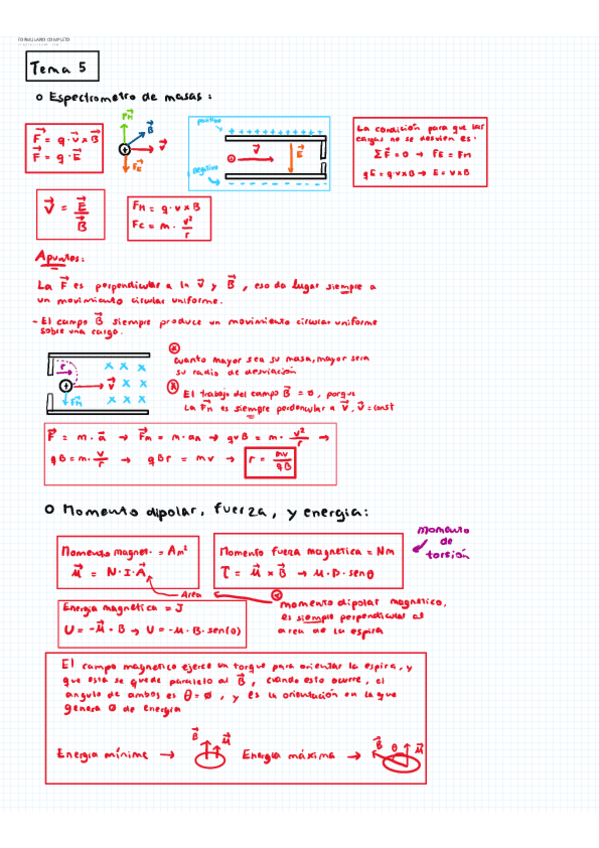 FORMULARIO COMPLETO
Tema 5
o Espectrometro de masas:
F⃗ = q · v⃗ x B⃗
F⃗ = q · E⃗
F⃗M
B⃗
v⃗
F⃗E
positivo
+ + + + + + + + + + + +
v⃗
E⃗
negativo
La condición para que las
cargas no se desvien es.
ΣF⃗ = 0 → FE = FM
qE = q·v×B → E = v×B
v⃗ = E⃗/B⃗
FM = q · v×B
Fc = m · v²/r
Apuntes:
La F⃗ es perpendicular a la v⃗ y B⃗, eso da lugar siempre a
un movimiento circular uniforme.
- El campo B⃗ siempre produce un movimiento circular uniforme
sobre una carga.
r
x x x
v⃗ x x
x x x
F⃗M
cuanto mayor sea su masa, mayor sera
su radio de desviación
El trabajo del campo B⃗ = ø, porque
La F⃗M es siempre perdendular a v⃗, v⃗ = const
F⃗ = m · a⃗ → F⃗m = m · an → qvB = m · v²/r →
qB = m · v/r → qBr = mv → r = mv/qB
o Momento dipolar, fuerza, y energia:
momento
de
torsión
Momento magnet. = Am²
μ⃗ = N · I · A⃗
Area
Momento fuerza magnetica = Nm
τ = μ⃗ × B⃗ → μ · B · senθ
Energia magnética = J
U = -μ⃗ · B → U = -μ · B · sen(θ)
momento dipolar magnético,
es siempre perpendicular al
area de la espira
El campo magnetico ejerce un torque para orientar la espira, y
que esta se quede paralelo al B⃗, cuando esto ocurre, el
angulo de ambos es θ = ø, y es la orientación en la que
genera 0 de energia
Energia mínime →
B⃗ μ⃗
Energia máxima →
B⃗ θ μ⃗